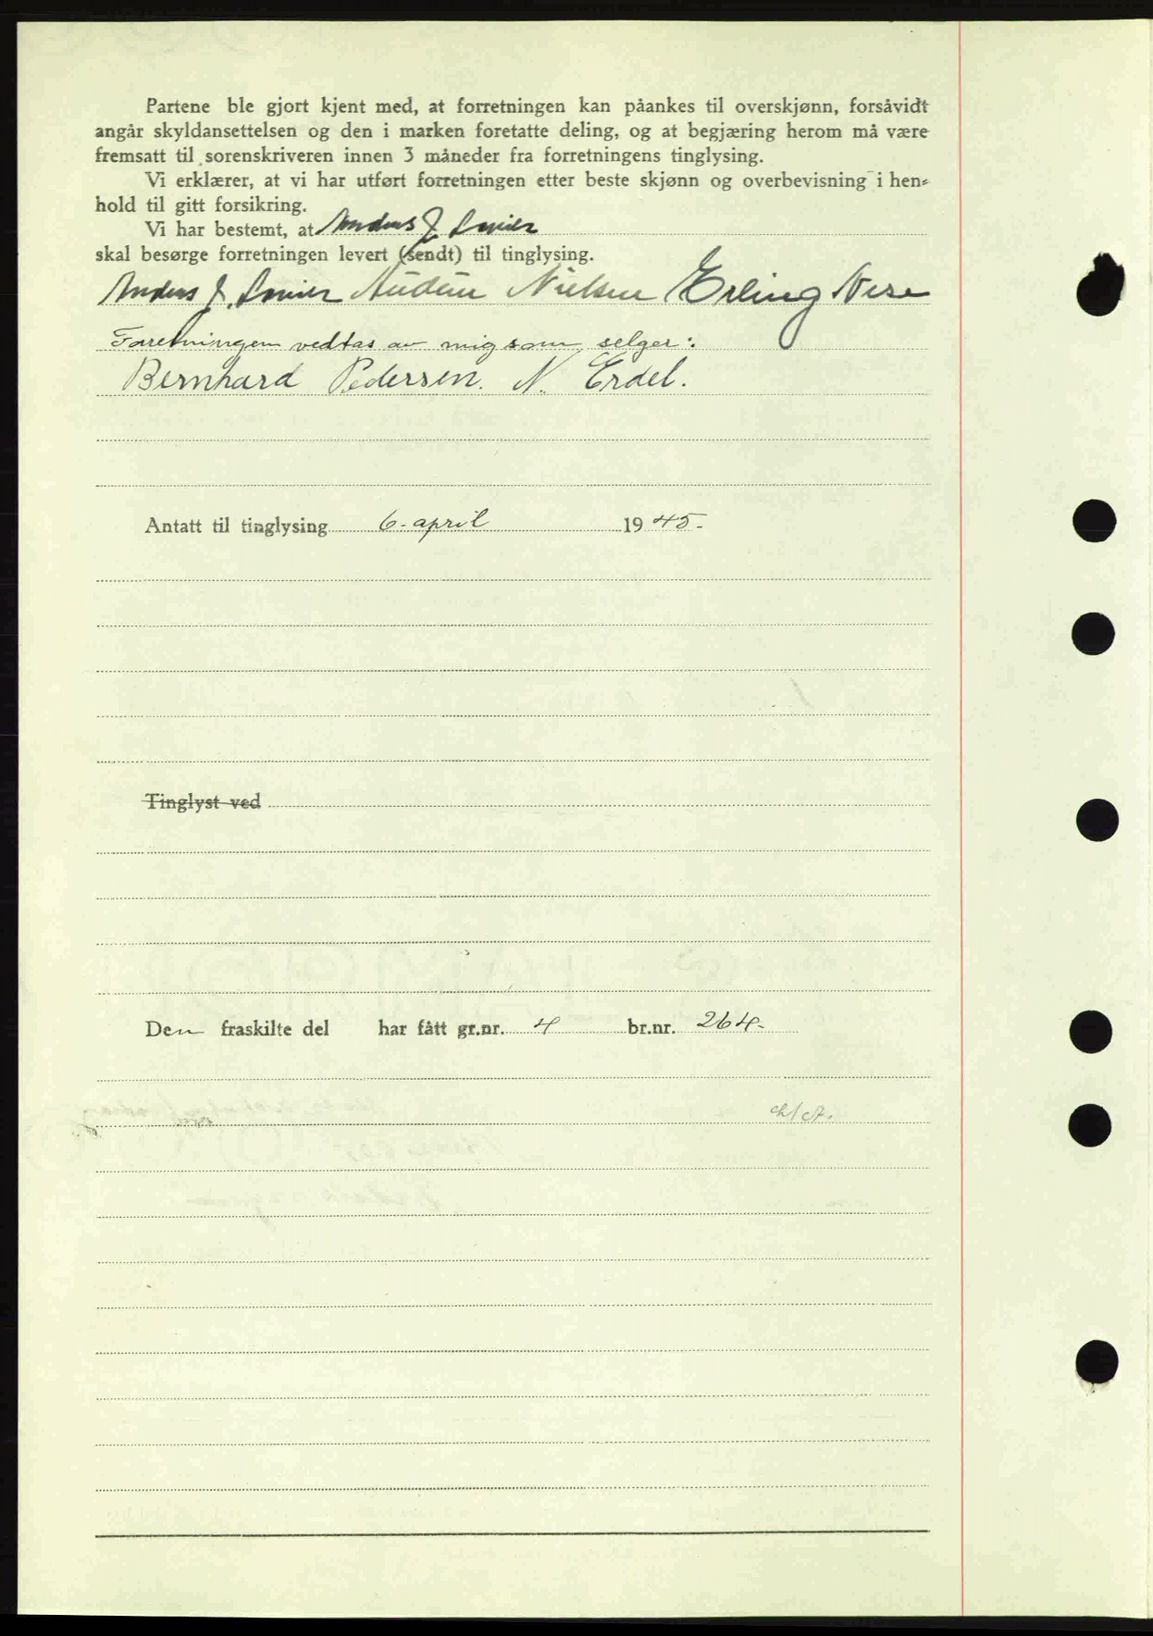 Partene ble gjort kjent med, at forretningen kan påankes til overskjønn, forsåvidt
angår skyldansettelsen og den i marken foretatte deling, og at begjæring herom må være
fremsatt til sorenskriveren innen 3 måneder fra forretningens tinglysing.
Vi erklærer, at vi har utført forretningen etter beste skjønn og overbevisning i hen-
hold til gitt forsikring.
Vi har bestemt, at Anders J.
skal besørge forretningen levert (sendt) til tinglysing.
Anders J. Audun Nielsen Erling
Foretningen vedtas av mig som selger:
Bernhard Pedersen. N. Erdel.
Antatt til tinglysing 6. april 1945.
Tinglyst ved
Den fraskilte del har fått gr.nr. 4 br.nr. 264.